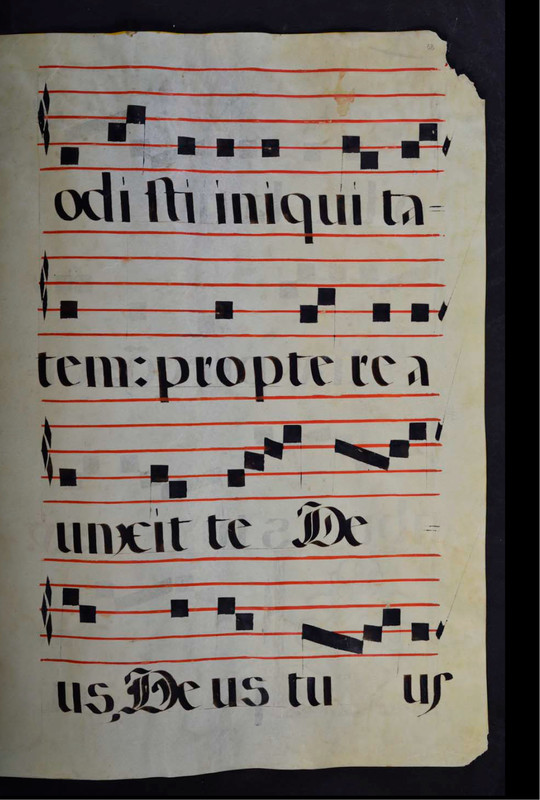 odi sti iniqui ta=
tem: propte re a
unxit te De =
us, De us tu us